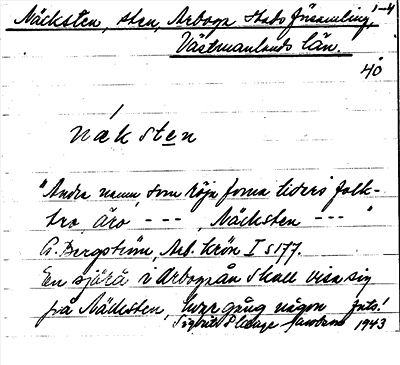 Näcksten, sten, Arboga Stadsförsamling, 1-4
Västmanlands län.
40
näksten
"Andra namn, som röja forna tiders folk-
tro äro --- , Näcksten --- "
G. Bergström, Arb. krön I s 177.
En sjörå i Arbogaån skall visa sig
på Näcksten, hvar gång någon
Sigurd 1943